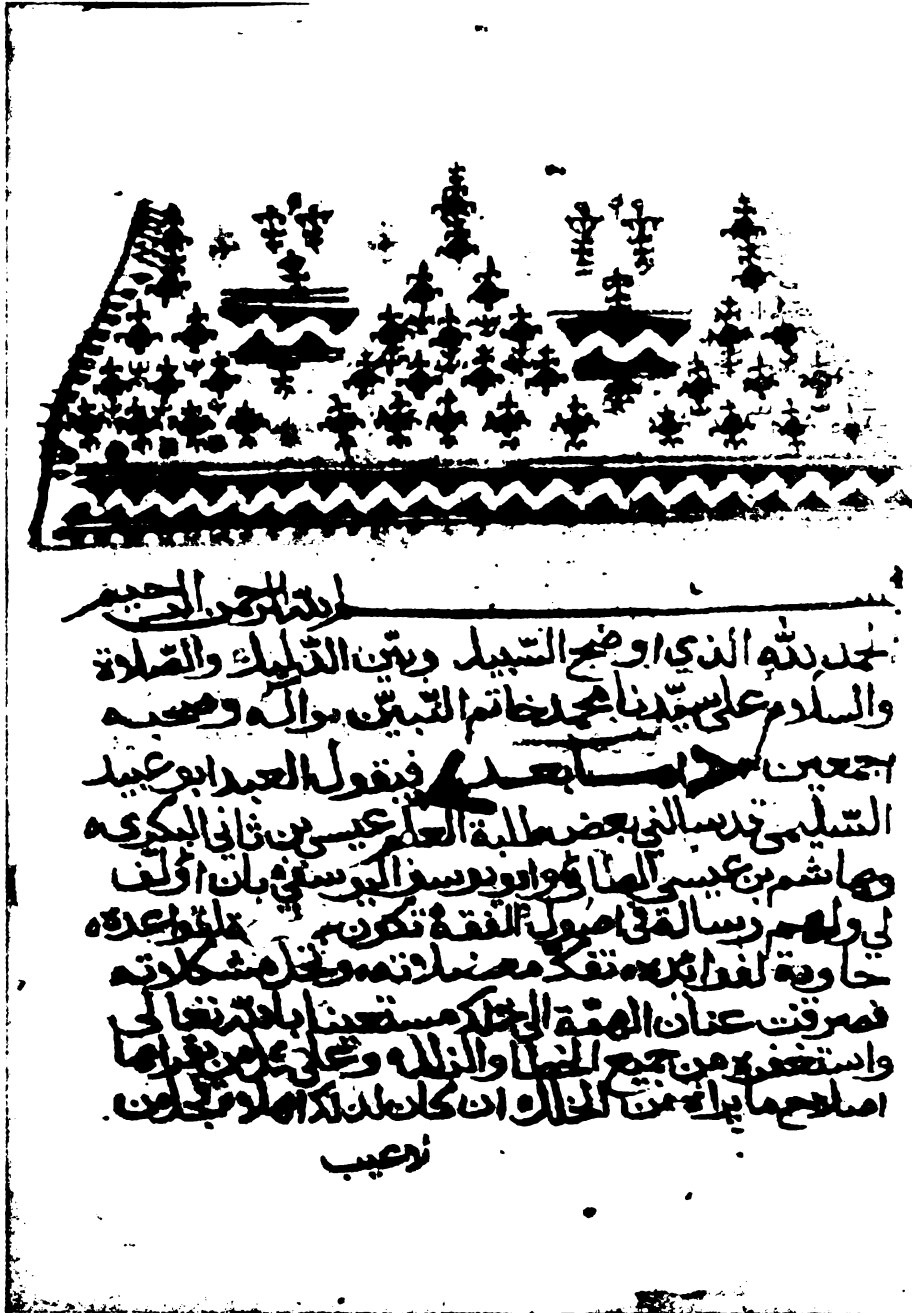 بسم الله الرحمن الرحيم
الحمد لله الذي اوضح السّبيل وبيّن الدّليل والصّلاة
والسلام على سيّدنا محمد خاتم النّبيّن وآله وصحبه
اجمعين امّا بعد فيقول العبد ابو عبيد
السّليمي قد سالني بعض طلبة العلم عيسى بن ثاني البكري
وهاشم بن عيسى الطائي وابو يوسف اليوسفي بان اؤلّف
لي ولهم رسالة في اصول الفقه تكون لقواعده
حاوية لفوائده تفك معضلاته وتحل مشكلاته
فصرفت عنان الهمّة الى ذلك مستعينا بالله تعالى
واستغفره من جميع الخطا والزلل وعلى من يقراها
اصلاح ما يراه من الخلل ان كان لذلك اهلا فجل من
لا عيب